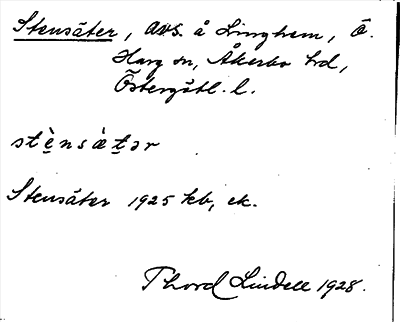 Stensäter, avs. å Linghem, Ö.
Harg sn, Åkerbo hd,
Östergötl. l.
stènsæ̀tər
Stensäter 1925 kb, ek.
Thord Lindell 1928.